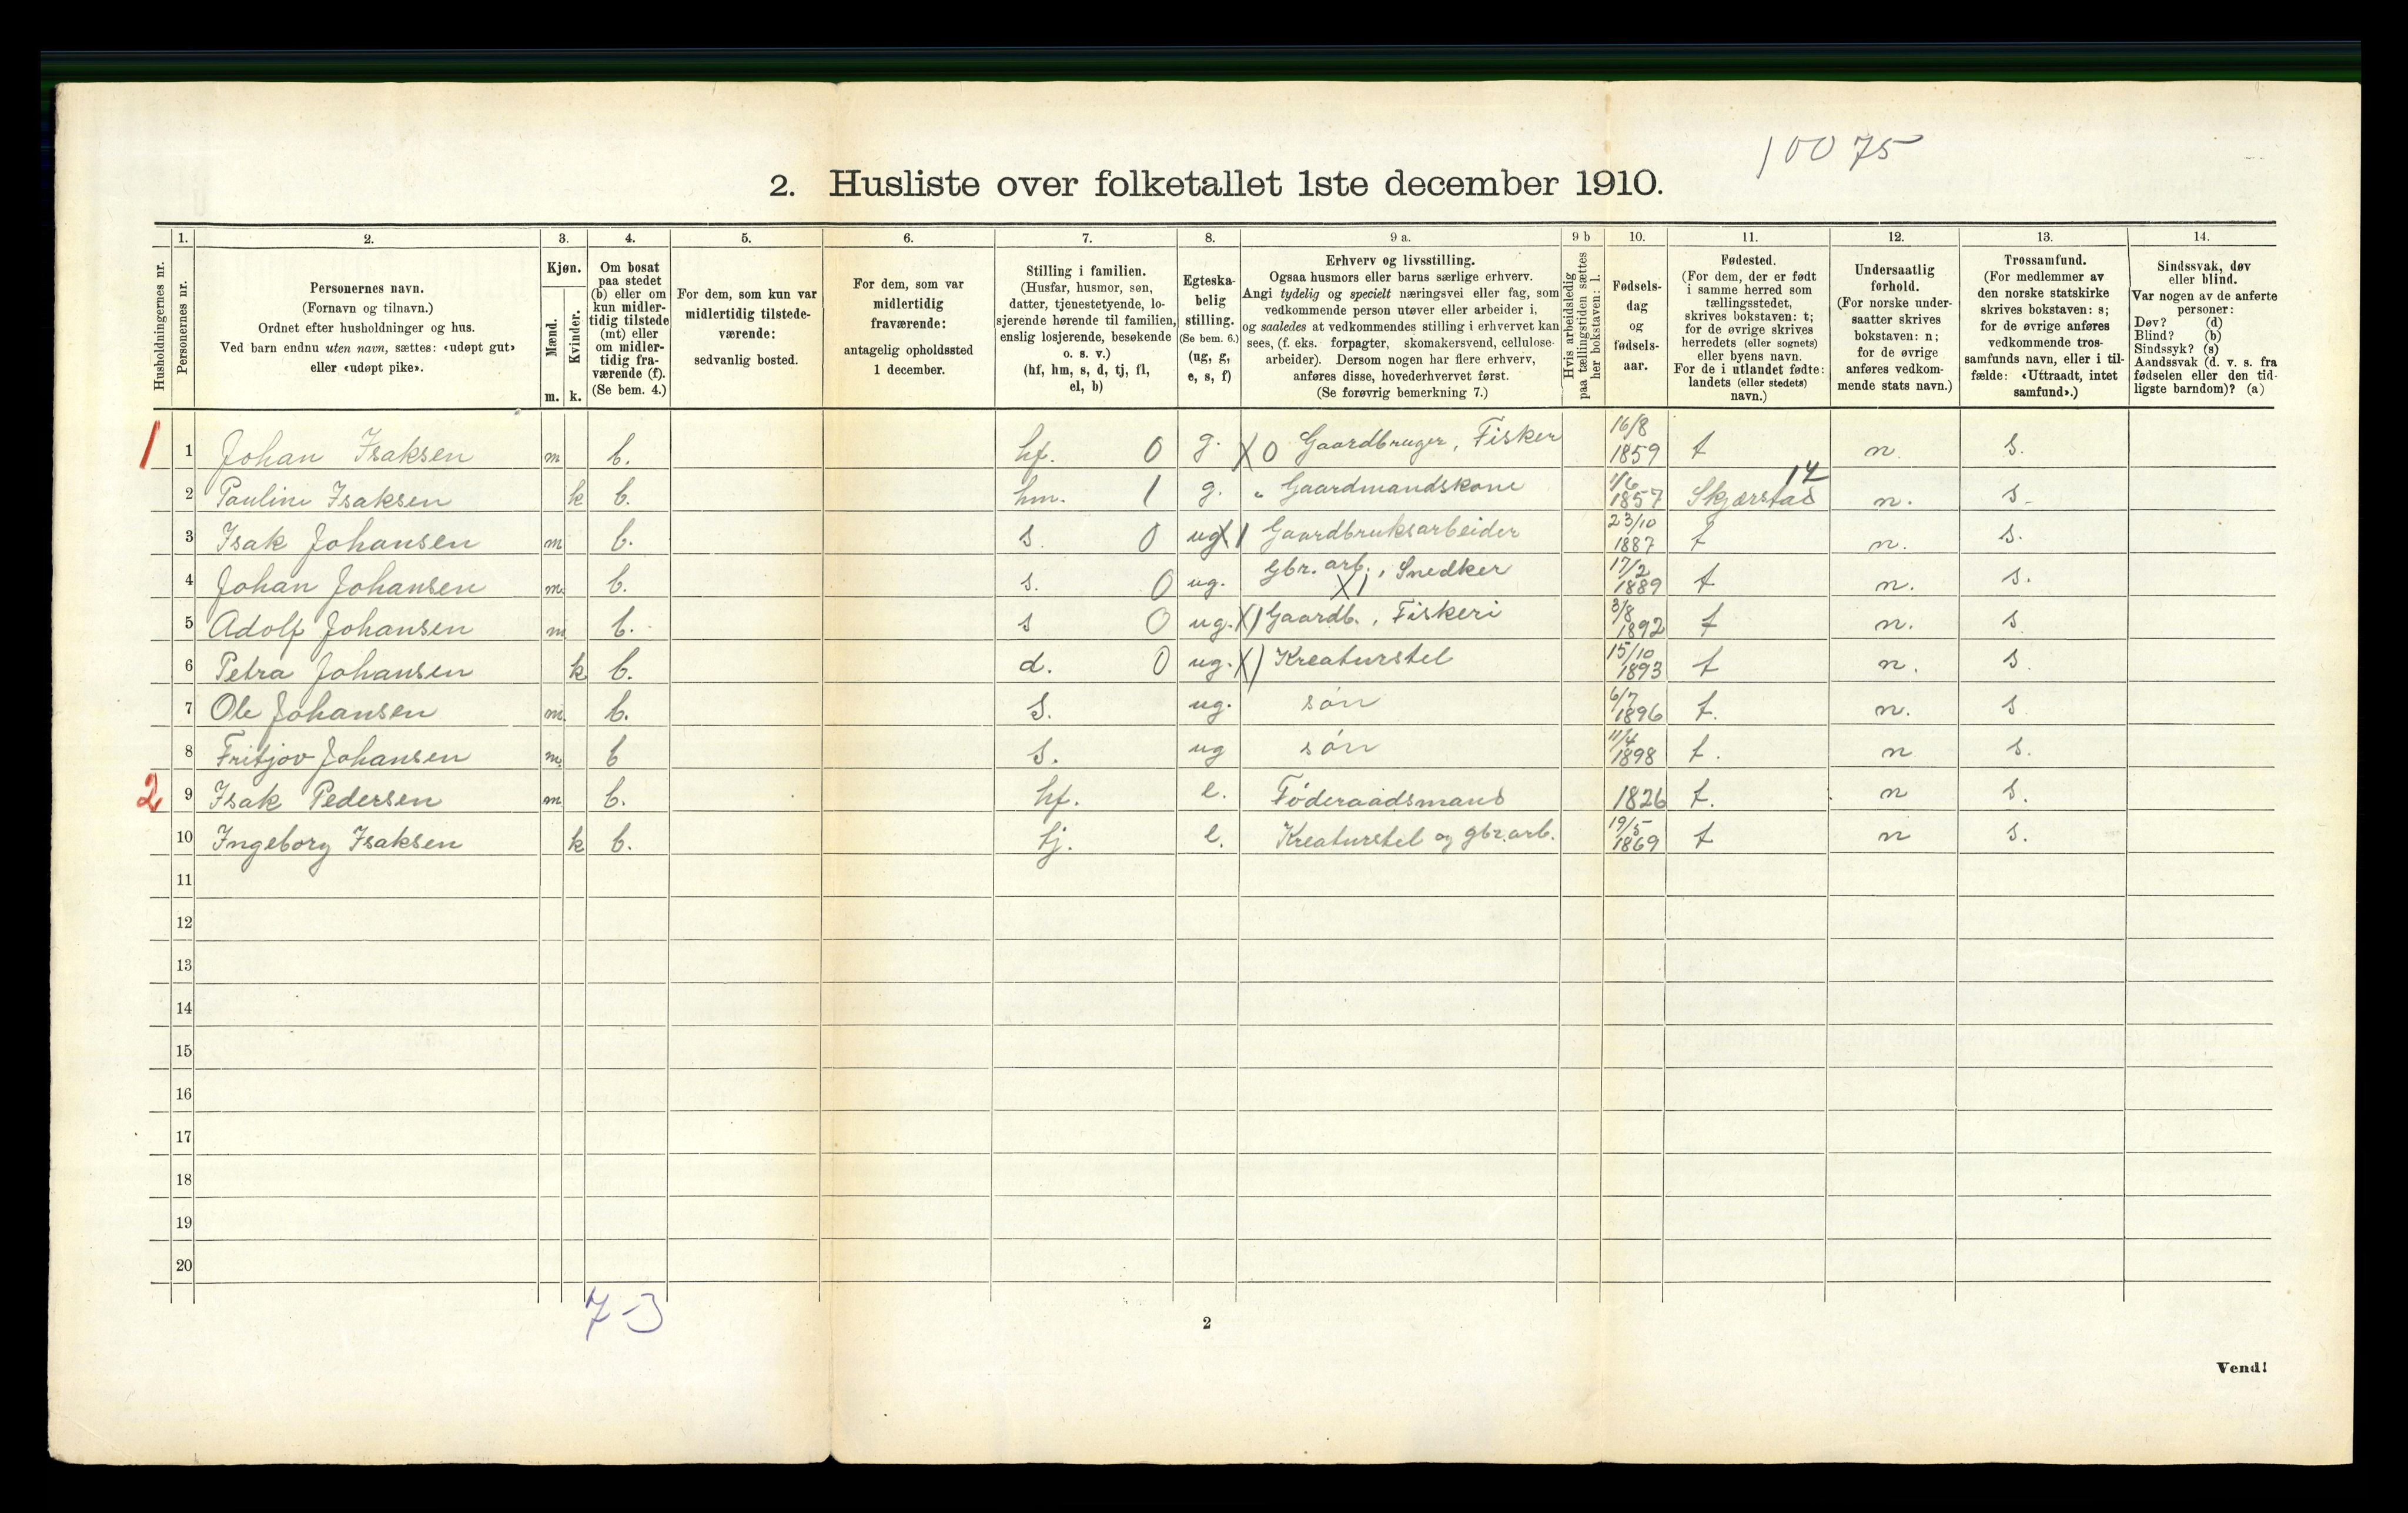 10075
2. Husliste over folketallet 1ste december 1910.
Husholdningernes nr.
1.
Personernes nr.
2.
Personernes navn.
(Fornavn og tilnavn.)
Ordnet efter husholdninger og hus.
Ved barn endnu uten navn, sættes: «udøpt gut»
eller «udøpt pike».
3.
Kjøn.
Mænd.
Kvinder.
m. k.
4.
Om bosat
paa stedet
(b) eller om
kun midler-
tidig tilstede
(mt) eller
om midler-
tidig fra-
værende (f).
(Se bem. 4.)
5.
For dem, som kun var
midlertidig tilstede-
værende:
sedvanlig bosted.
6.
For dem, som var
midlertidig
fraværende:
antagelig opholdssted
1 december.
7.
Stilling i familien.
(Husfar, husmor, søn,
datter, tjenestetyende, lo-
sjerende hørende til familien,
enslig losjerende, besøkende
o. s. v.)
(hf, hm, s, d, tj, fl,
el, b)
8.
Egteska-
belig
stilling.
(Se bem. 6.)
(ug, g,
e, s, f)
9 a.
Erhverv og livsstilling.
Ogsaa husmors eller barns særlige erhverv.
Angi tydelig og specielt næringsvei eller fag, som
vedkommende person utøver eller arbeider i,
og saaledes at vedkommendes stilling i erhvervet kan
sees, (f. eks. forpagter, skomakersvend, cellulose-
arbeider). Dersom nogen har flere erhverv,
anføres disse, hovederhvervet først.
(Se forøvrig bemerkning 7.)
9 b
Hvis arbeidsledig
paa tællingstiden sættes
her bokstaven: l.
10.
Fødsels-
dag
og
fødsels-
aar.
11.
Fødested.
(For dem, der er født
i samme herred som
tællingsstedet,
skrives bokstaven: t;
for de øvrige skrives
herredets (eller sognets)
eller byens navn.
For de i utlandet fødte:
landets (eller stedets)
navn.)
12.
Undersaatlig
forhold.
(For norske under-
saatter skrives
bokstaven: n;
for de øvrige
anføres vedkom-
mende stats navn.)
13.
Trossamfund.
(For medlemmer av
den norske statskirke
skrives bokstaven: s;
for de øvrige anføres
vedkommende tros-
samfunds navn, eller i til-
fælde: «Uttraadt, intet
samfund».)
14.
Sindssvak, døv
eller blind.
Var nogen av de anførte
personer:
Døv? (d)
Blind? (b)
Sindssyk? (s)
Aandssvak (d. v. s. fra
fødselen eller den tid-
ligste barndom)? (a)
1 1 Johan Isaksen m b. hf. 0 g. X 0 Gaardbruger, Fisker 16/8 1859 t n. s.
2 Pauline Isaksen k b. hm. 1 g. " Gaardmandskone 1/6 1857 Skjærstad 14 n. s.
3 Isak Johansen m b. s. 0 ug X 1 Gaardbruksarbeider 23/10 1887 t n. s.
4 Johan Johansen m. b. s. 0 ug. Gbr. arb., Snedker X 1 17/2 1889 t n. s.
5 Adolf Johansen m b. s 0 ug. X 1 Gaardb., Fiskeri 3/8 1892 t n. s
6 Petra Johansen k b. d. 0 ug. X 1 Kreaturstel 15/10 1893 t n. s.
7 Ole Johansen m. b. s. ug. søn 6/7 1896 t. n. s
8 Fritjov Johansen m. b s. ug søn 11/4 1898 t. n s.
2 9 Isak Pedersen m b. hf. e. Føderaadsmand 1826 t. n s.
10 Ingeborg Isaksen k b. tj. e. Kreaturstel og gbr.arb. 19/5 1869 t n s.
11
12
13
14
15
16
17
18
19
20
7-3
2
Vend!